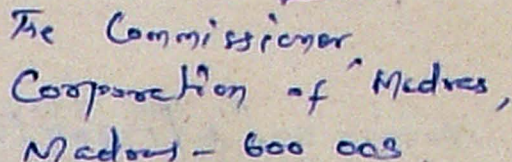 The Commissioner,
Corporation of Madras,
Madras - 600 003